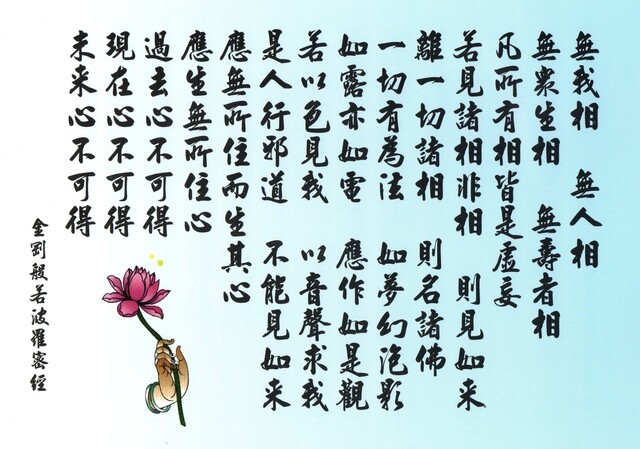 無我相　無人相
無衆生相　無壽者相
凡所有相皆是虛妄
若見諸相非相　則見如来
離一切諸相　則名諸佛
一切有為法　如夢幻泡影
如露亦如電　應作如是觀
若以色見我　以音聲求我
是人行邪道　不能見如来
應無所住而生其心
應生無所住心
過去心不可得
現在心不可得
未来心不可得
金剛般若波羅密經